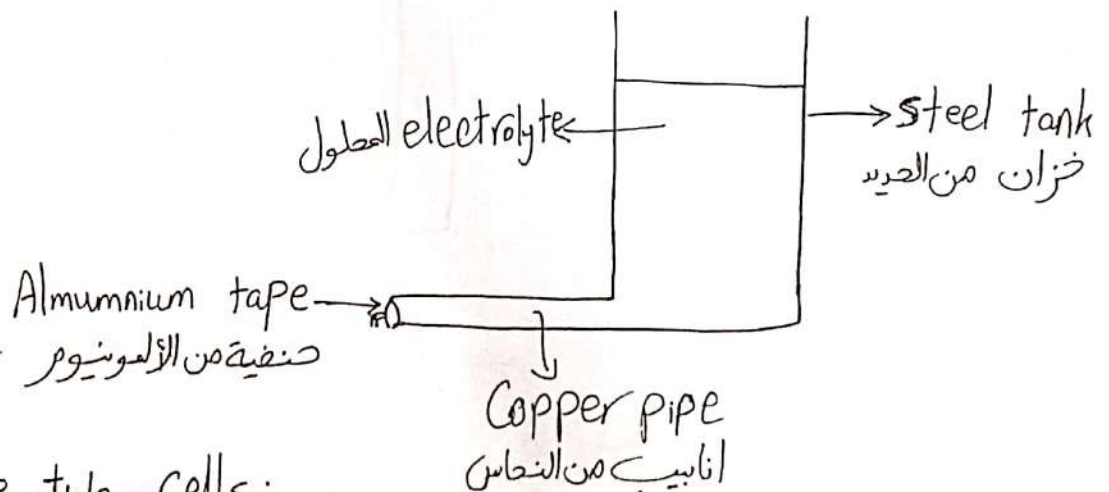 المحلول electrolyte
steel tank
خزان من الحديد
Almumnium tape
حنفية من الألمونيوم
Copper pipe
انابيب من النحاس
cells: